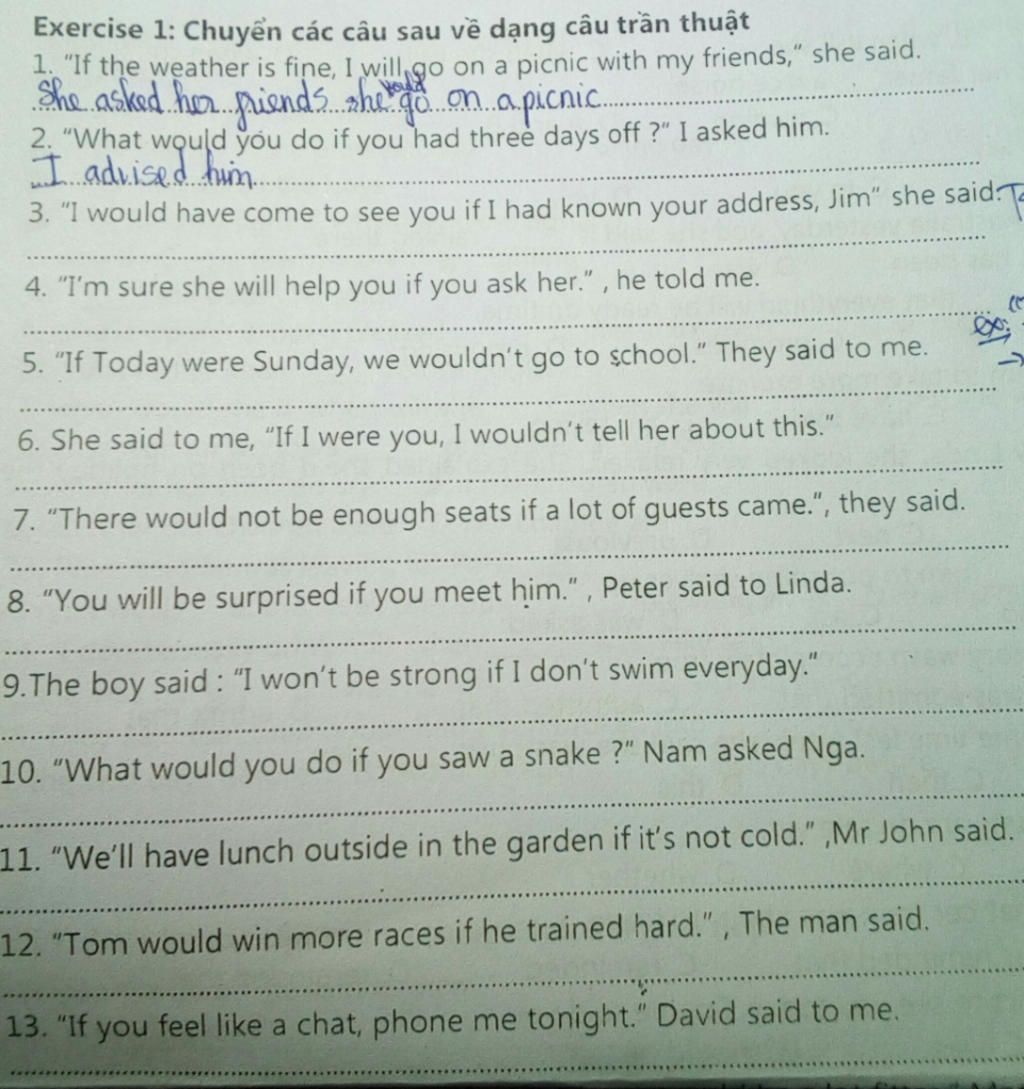 Exercise 1: Chuyển các câu sau về dạng câu trần thuật
1. "If the weather is fine, I will go on a picnic with my friends," she said.
would
She asked her friends she go on a picnic
2. "What would you do if you had three days off ?" I asked him.
I advised him
3. "I would have come to see you if I had known your address, Jim" she said.
4. "I'm sure she will help you if you ask her." , he told me.
ex:
5. "If Today were Sunday, we wouldn't go to school." They said to me.
→
6. She said to me, "If I were you, I wouldn't tell her about this."
7. "There would not be enough seats if a lot of guests came.", they said.
8. "You will be surprised if you meet him." , Peter said to Linda.
9.The boy said : "I won't be strong if I don't swim everyday."
10. "What would you do if you saw a snake ?" Nam asked Nga.
11. "We'll have lunch outside in the garden if it's not cold." ,Mr John said.
12. "Tom would win more races if he trained hard." , The man said.
13. "If you feel like a chat, phone me tonight." David said to me.